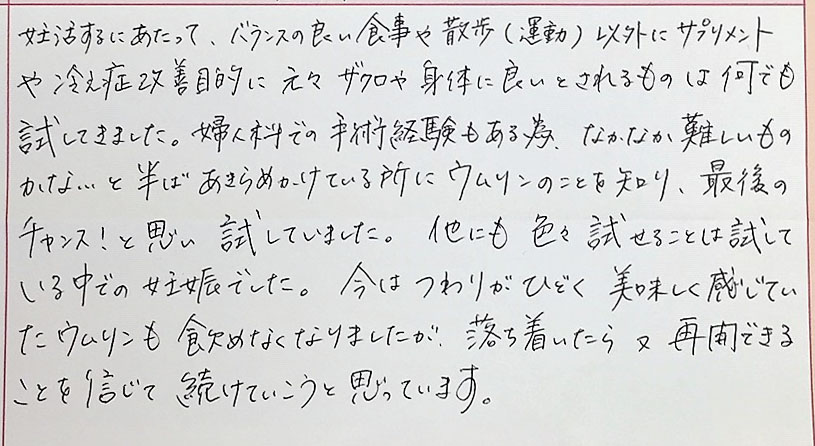 妊活するにあたって、バランスの良い食事や散歩(運動)以外にサプリメント
や冷え症改善目的に元々ザクロや身体に良いとされるものは何でも
試してきました。婦人科での手術経験もある為、なかなか難しいもの
かな…と半ばあきらめかけている所にウムリンのことを知り、最後の
チャンス!と思い試していました。他にも色々試せることは試して
いる中での妊娠でした。今はつわりがひどく美味しく感じてい
たウムリンも飲めなくなりましたが、落ち着いたら又再開できる
ことを信じて続けていこうと思っています。